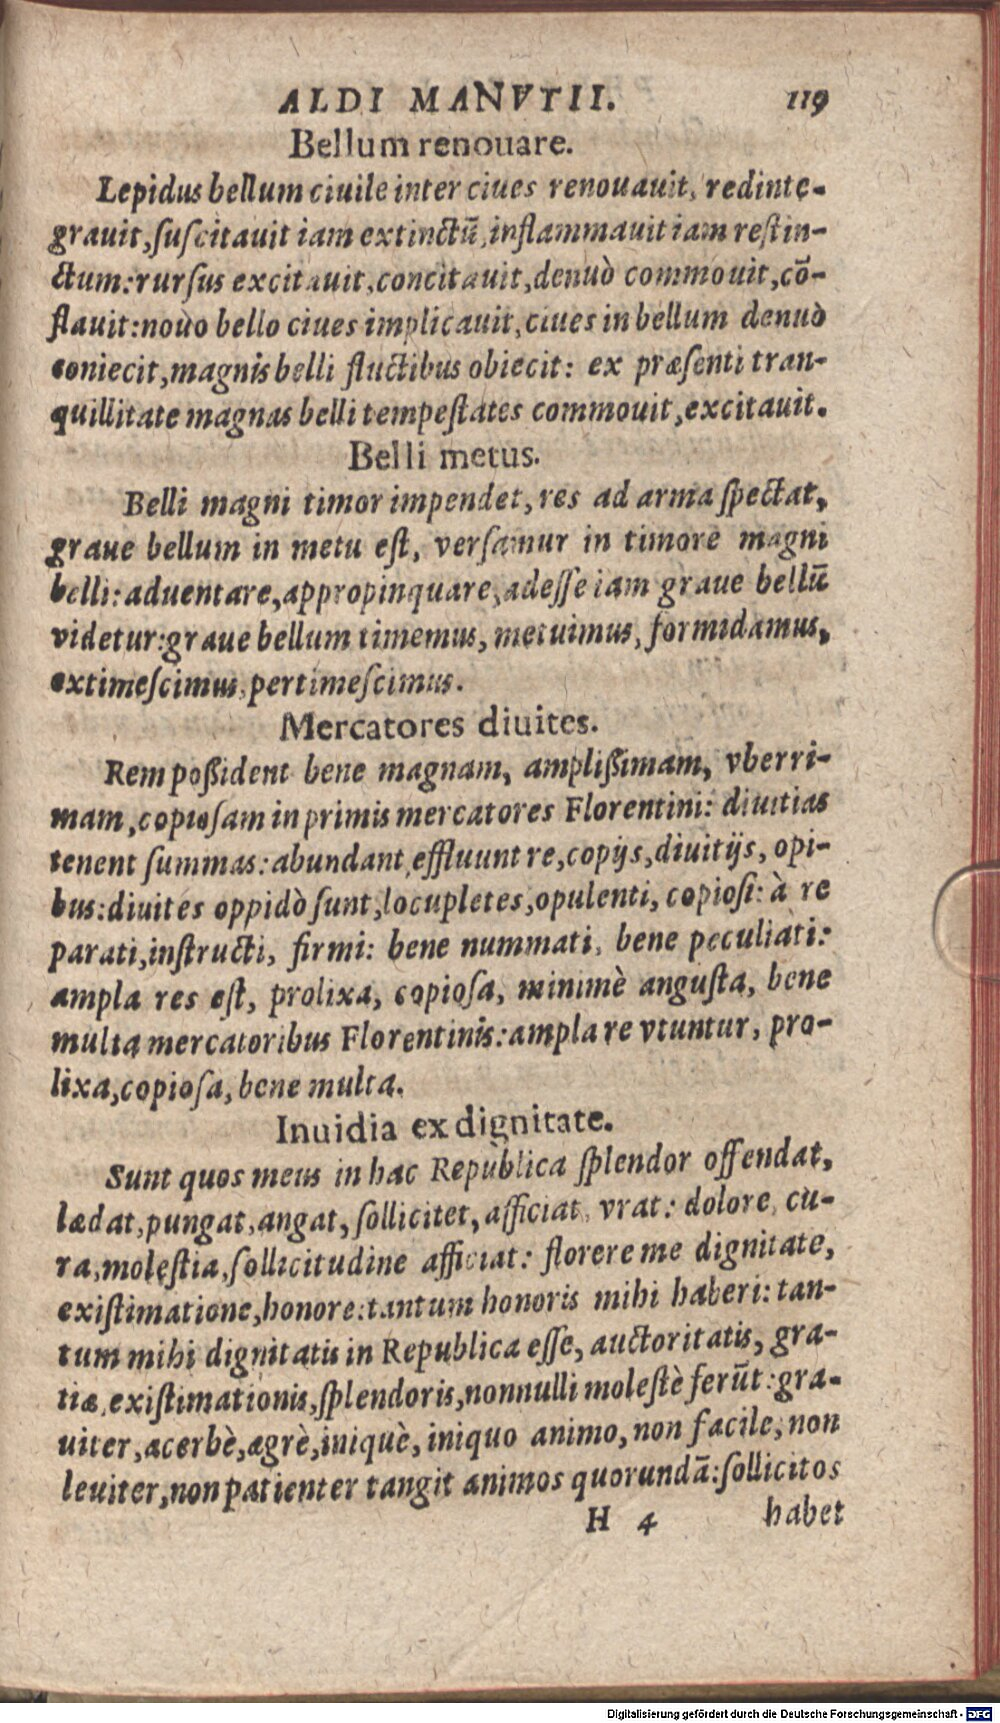 ALDI MANVTII. 119
Bellum renouare.
Lepidus bellum ciuile inter ciues renouauit, redinte-
grauit, suscitauit iam extinctū, inflammauit iam restin-
ctum: rursus excitauit, concitauit, denuò commouit, cō-
flauit: nouo bello ciues implicauit, ciues in bellum denuò
coniecit, magnis belli fluctibus obiecit: ex præsenti tran-
quillitate magnas belli tempestates commouit, excitauit.
Belli metus.
Belli magni timor impendet, res ad arma spectat,
graue bellum in metu est, versamur in timore magni
belli: aduentare, appropinquare, adesse iam graue bellū
videtur: graue bellum timemus, metuimus, formidamus,
extimescimus, pertimescimus.
Mercatores diuites.
Rem possident bene magnam, amplissimam, vberri-
mam, copiosam in primis mercatores Florentini: diuitias
tenent summas: abundant, effluunt re, copijs, diuitijs, opi-
bus: diuites oppidò sunt, locupletes, opulenti, copiosi: à re
parati, instructi, firmi: bene nummati, bene peculiati:
ampla res est, prolixa, copiosa, minimè angusta, bene
multa mercatoribus Florentinis: ampla re vtuntur, pro-
lixa, copiosa, bene multa.
Inuidia ex dignitate.
Sunt quos meus in hac Republica splendor offendat,
lædat, pungat, angat, sollicitet, afficiat, vrat: dolore, cu-
ra, molestia, sollicitudine afficiat: florere me dignitate,
existimatione, honore: tantum honoris mihi haberi: tan-
tum mihi dignitatis in Republica esse, auctoritatis, gra-
tiæ, existimationis, splendoris, nonnulli molestè ferūt: gra-
uiter, acerbè, ægrè, iniquè, iniquo animo, non facile, non
leuiter, non patienter tangit animos quorundā: sollicitos
H 4 habet
Digitalisierung gefördert durch die Deutsche Forschungsgemeinschaft - DFG